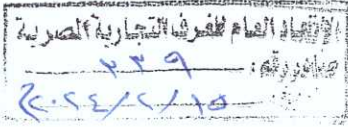 الاتحاد العام للغرف التجارية المصرية
صادر رقم: ٣٣٩
٢٠٢٤/٢/١٥